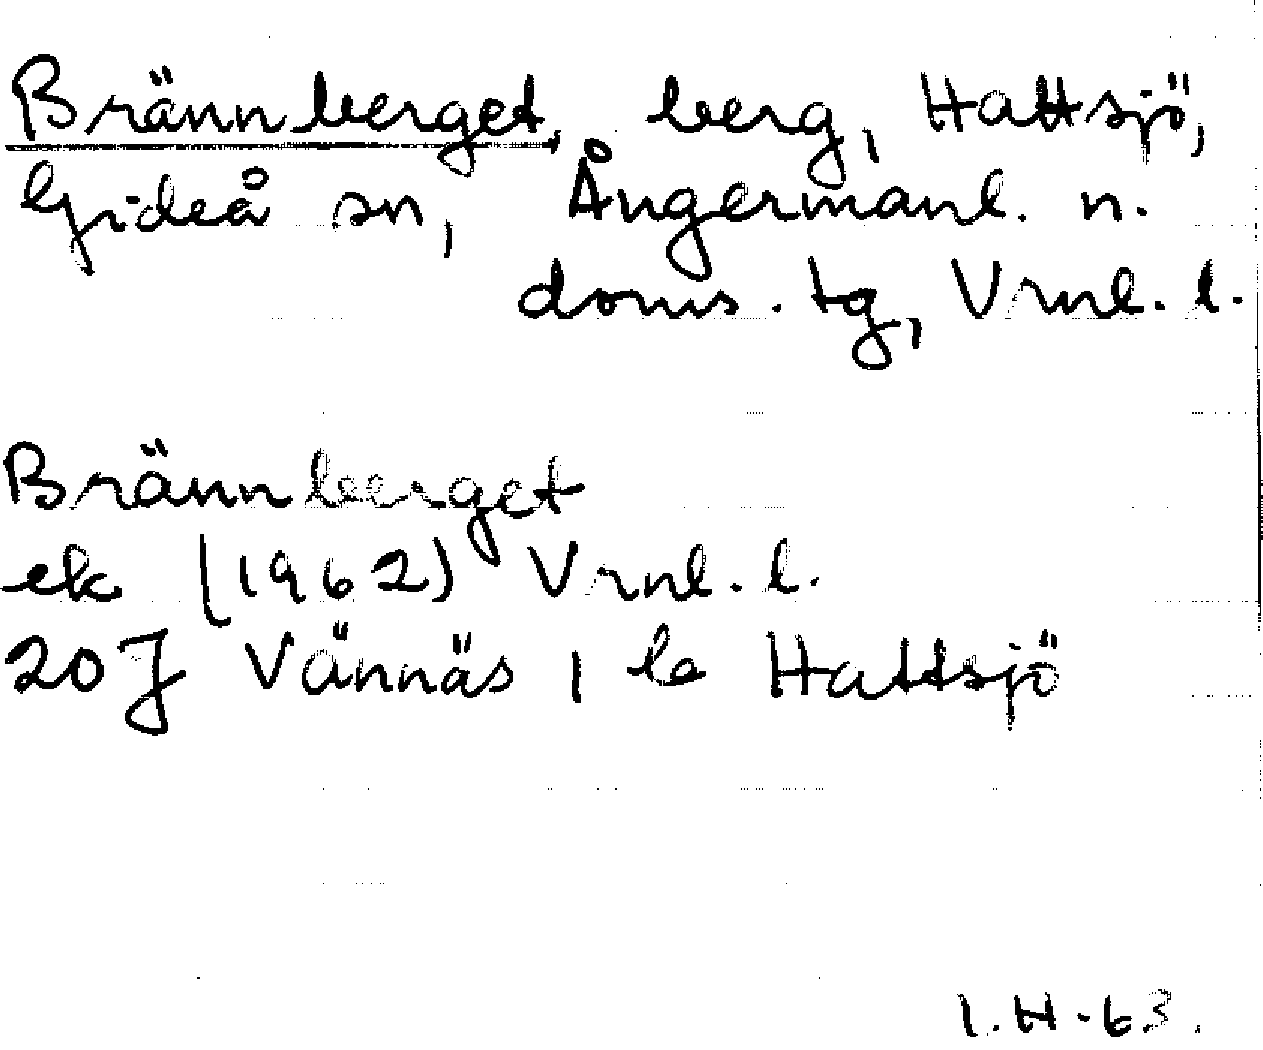 Brännberget, berg, Hattsjö,
Gideå sn, Ångermanl. n.
doms. tg, Vrnl. l.
Brännberget
ek (1962) Vrnl. l.
20J Vännäs 1 le Hattsjö
I.H-63.